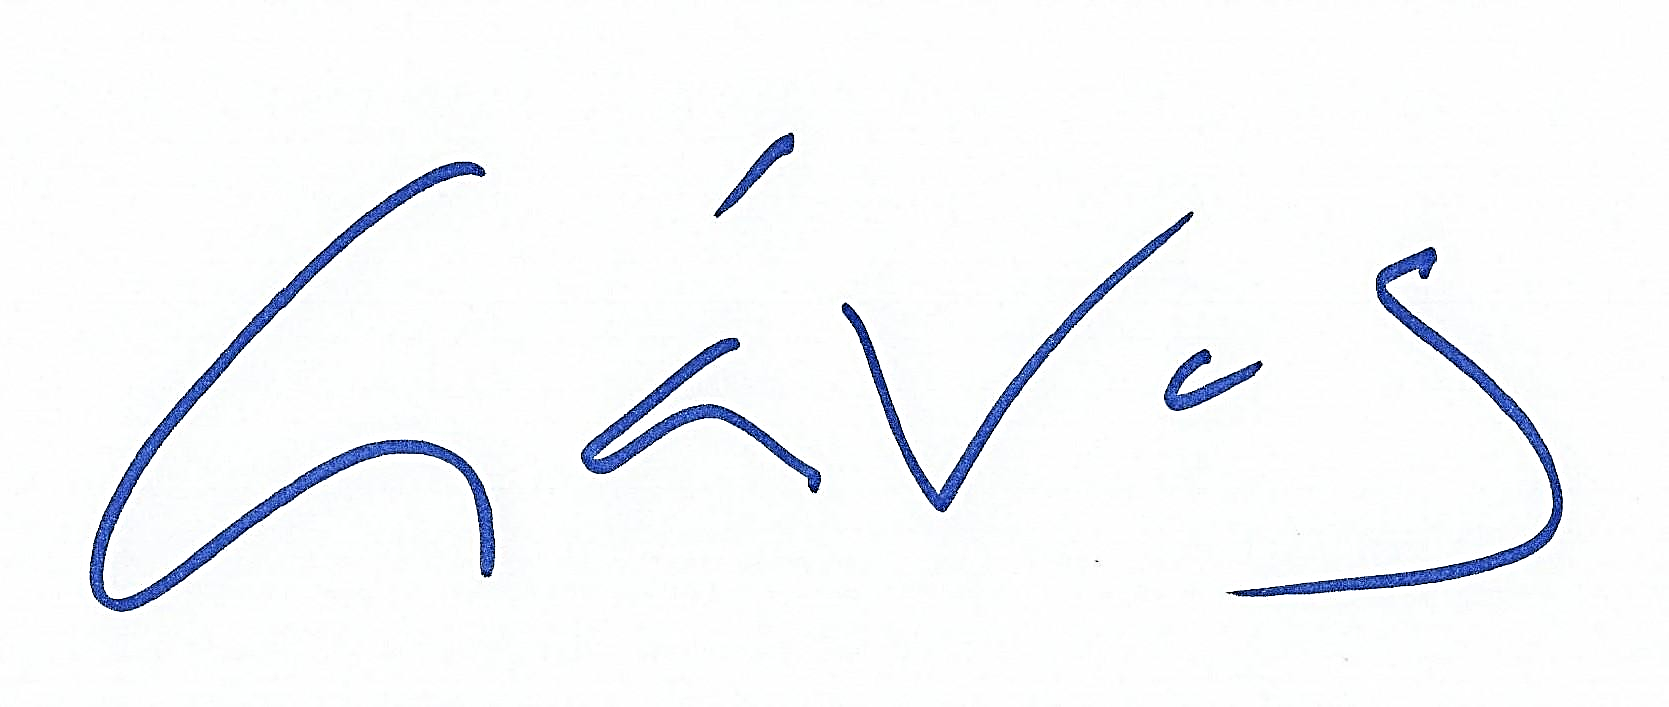 Gávos